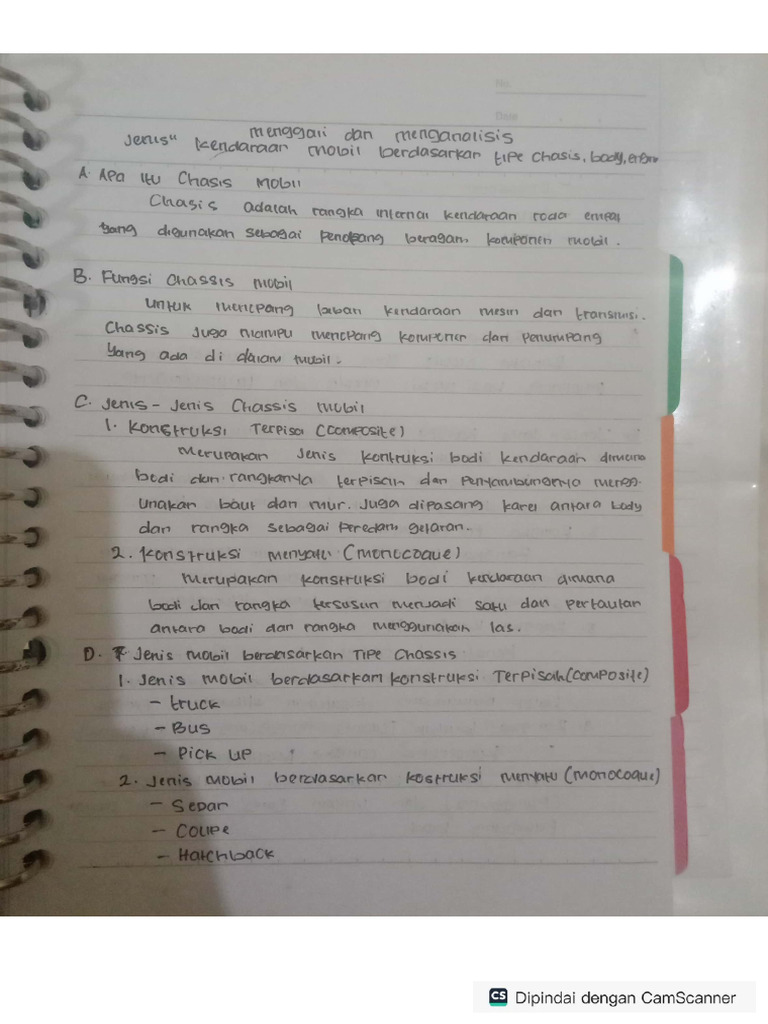 No.
Date
menggali dan menganalisis
Jenis" kendaraan mobil berdasarkan tipe chasis, body,
A. Apa itu Chasis Mobil
Chasis adalah rangka internal kendaraan roda empat
yang digunakan sebagai penopang beragam komponen mobil.
B. Fungsi Chassis Mobil
Untuk menopang beban kendaraan mesin dan transmisi.
Chassis juga mampu menopang komponen dan penumpang
yang ada di dalam mobil.
C. Jenis - Jenis Chassis Mobil
1. Konstruksi Terpisa (Composite)
Merupakan Jenis kontruksi bodi kendaraan dimana
bodi dan rangkanya terpisah dan penyambungnya mengg-
unakan baut dan mur. Juga dipasang karet antara body
dan rangka sebagai peredam getaran.
2. Konstruksi menyatu (monocoque)
Merupakan konstruksi bodi kendaraan dimana
bodi dan rangka tersusun menjadi satu dan pertautan
antara bodi dan rangka menggunakan las.
D. Jenis mobil berdasarkan Tipe Chassis
1. Jenis mobil berdasarkan konstruksi Terpisah (Composite)
- truck
- Bus
- Pick up
2. Jenis mobil berdasarkan kostruksi menyatu (monocoque)
- Sedan
- Coupe
- Hatchback
CS Dipindai dengan CamScanner